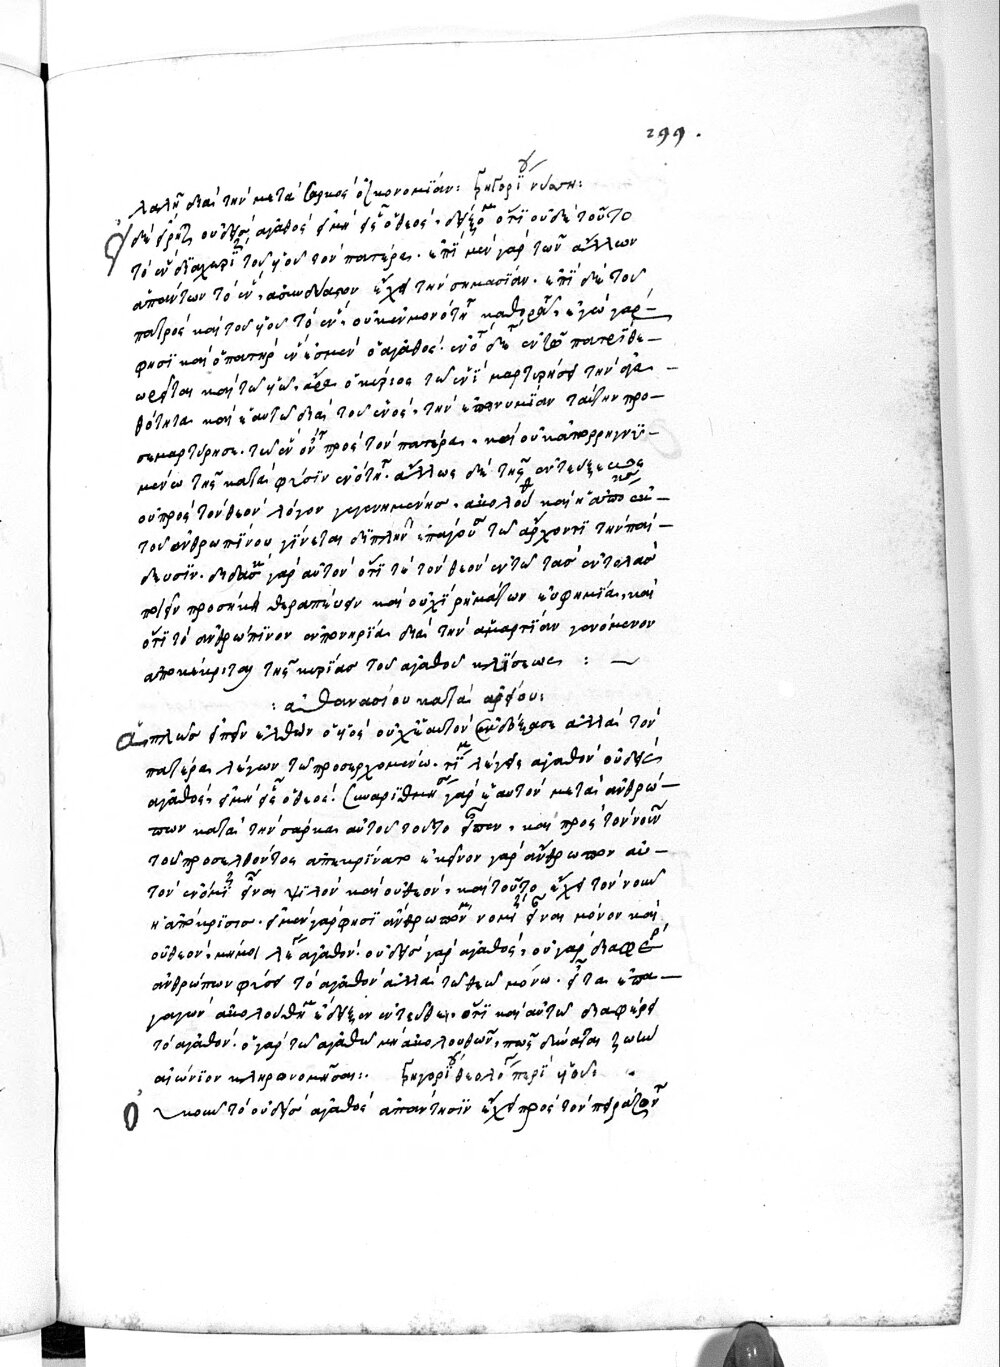 299.
λαλῆ διὰ τὴν μετὰ σαρκὸς οἰκονομίαν: γρηγορίου νύσης:
δὲ εἴρηται οὐδεὶς ἀγαθὸς εἰ μὴ εἷς ὁ θεός. ὅτι οὐδὲ τοῦτο
τὸ ἓν διαχωρίζει τοῦ υἱοῦ τὸν πατέρα. ἐπὶ μὲν γὰρ τῶν ἄλλων
ἁπάντων τὸ ἓν, ἀσυνδύαστον ἔχει τὴν σημασίαν. ἐπὶ δὲ τοῦ
πατρὸς καὶ τοῦ υἱοῦ τὸ ἓν, οὐκ ἐν μονότητι καθορᾶται, ἐγὼ γάρ
φησι καὶ ὁ πατὴρ ἕν ἐσμεν ὁ ἀγαθὸς ἐν τῷ πατρὶ θε-
ωρεῖται καὶ τῶ υἱῶ, ἄρα ὁ κύριος τῶ ἑνὶ μαρτυρήσει τὴν ἀγα-
θότητα καὶ ἑαυτῶ διὰ τοῦ ἑνὸς, τὴν ἐπωνυμίαν ταύτην προ-
σεμαρτύρησε. τῶ ἑν πρὸς τὸν πατέρα, καὶ οὐκ ἀπορρηγνυ-
μένω τῆς κατὰ φύσιν ἑνότητος. ἄλλως δὲ τῆς ἐντεύξεως
οὐ πρὸς τὸν θεὸν λόγον γεγενημένης, ἀκολούθως καὶ ἡ ἀπόκρισις ἐκ
τοῦ ἀνθρωπίνου γίνεται διπλῆν ἐπάγουσα τῶ ἄρχοντι τὴν παί-
δευσιν. διδάσκει γὰρ αὐτὸν ὅτι τε τὸν θεὸν ἐν τῶ τὰς ἐντολὰς
ποιεῖν προσήκει θεραπεύειν καὶ οὐχὶ ῥημάτων εὐφημία, καὶ
ὅτι τὸ ἀνθρώπινον ἐν πονηρία διὰ τὴν ἁμαρτίαν γενόμενον
ἀποκέκριται τῆς κυρίας τοῦ ἀγαθοῦ κλήσεως :
: ἀθανασίου κατὰ ἀρείου:
ἁπλῶς εἰπεῖν ἐλθὼν ὁ υἱὸς οὐχ ἑαυτὸν ἐδόξασε ἀλλὰ τὸν
πατέρα λέγων τῶ προσερχομένω. τί με λέγεις ἀγαθὸν οὐδεὶς
ἀγαθὸς, εἰ μὴ εἷς ὁ θεός. συναριθμήσας γὰρ ἑαυτὸν μετὰ ἀνθρώ-
πων κατὰ τὴν σάρκα αὐτοῦ τοῦτο εἶπεν, καὶ πρὸς τὸν νοῦν
τοῦ προσελθόντος ἀπεκρίνατο ἐκεῖνον γὰρ ἄνθρωπον αὐ-
τὸν ἐνόμιζεν εἶναι ψιλὸν καὶ οὐ θεὸν, καὶ τοῦτο ἔχει τὸν νοῦν
ἡ ἀπόκρισις. εἰ μὲν γάρ φησι ἄνθρωπόν με νομίζεις εἶναι μόνον καὶ
οὐ θεὸν, μή με λέγε ἀγαθὸν. οὐδεὶς γὰρ ἀγαθὸς, οὐ γὰρ διαφέρει
ἀνθρώπων φύσει τὸ ἀγαθὸν ἀλλὰ τῶ θεῶ μόνω. εἶτα ἐπα-
γαγὼν ἀκολουθεῖν ἔδειξεν ἐντεῦθεν, ὅτι καὶ αὐτῶ διαφέρει
τὸ ἀγαθὸν. ὁ γὰρ τῶ ἀγαθῶ μὴ ἀκολουθῶν, πῶς δύναται ζωὴν
αἰώνιον κληρονομῆσαι:. γρηγορίου θεολόγου περὶ υἱοῦ:
κοινὸν τὸ οὐδεὶς ἀγαθὸς ἀπάντησιν ἔχει πρὸς τὸν πειράζοντα